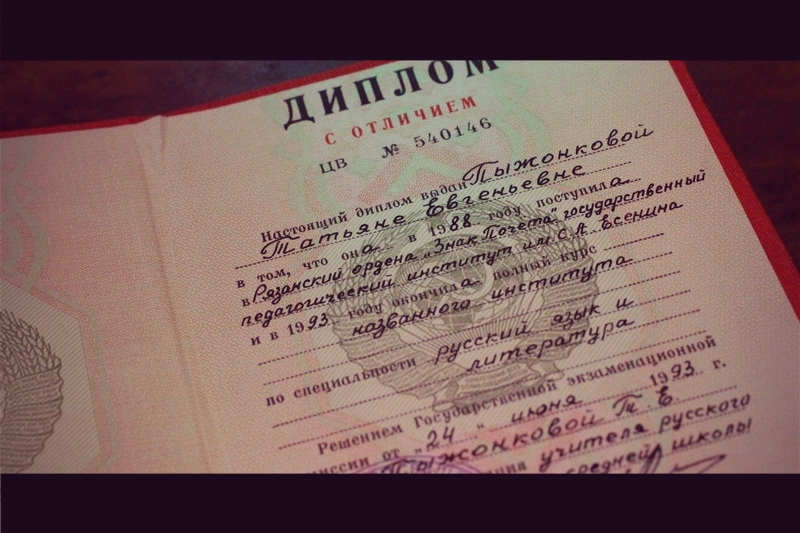 ДИПЛОМ
С ОТЛИЧИЕМ
ЦВ № 540146
Настоящий диплом выдан Пыжонковой
Татьяне Евгеньевне
в том, что она в 1988 году поступила
в Рязанский ордена „Знак Почета" государственный
педагогический институт им. С. А. Есенина
и в 1993 году окончила полный курс
названного института
по специальности русский язык и
литература
Решением Государственной экзаменационной
миссии от "24" июня 1993 г.
Пыжонковой Т. Е.
учителя русского
средней школы